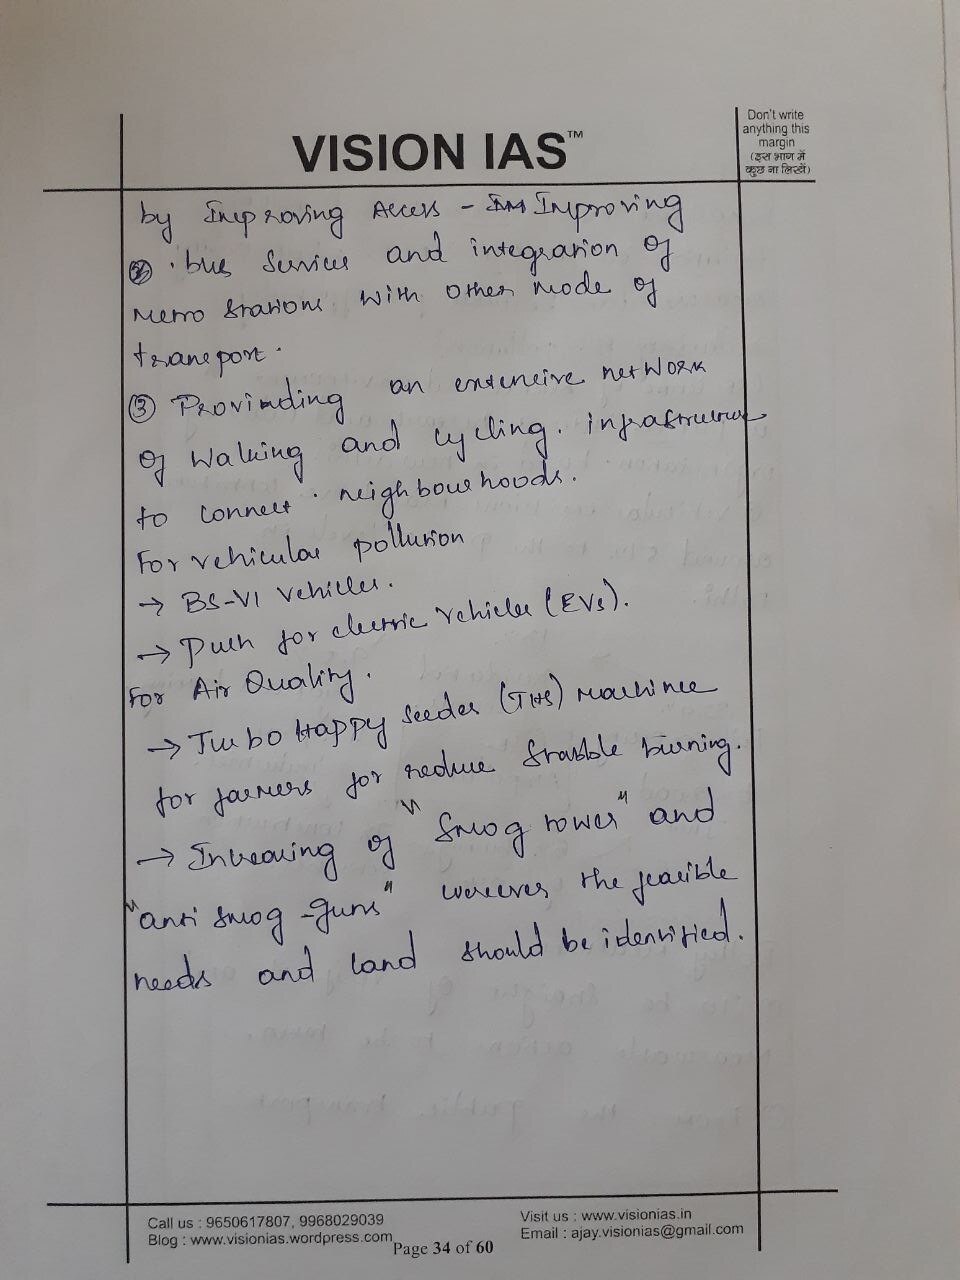 Don't write
anything this
margin
(इस भाग में
कुछ ना लिखें)
VISION IAS™
by Improving Access - Improving
② bus services and integration of
metro stations with other mode of
transport.
③ Provinding an extensive network
of walking and cycling. infrastructure
to connect neighbourhoods.
For vehicular pollution
→ BS-VI vehicles.
→ Push for electric vehicles (EVs).
For Air Quality.
→ Turbo Happy Seeder (THS) machines
for farmers for reduce stubble burning.
→ Increasing of "Smog tower" and
"anti smog-guns" wereever the feasible
needs and land should be identified.
Call us : 9650617807, 9968029039
Blog : www.visionias.wordpress.com
Page 34 of 60
Visit us : www.visionias.in
Email : ajay.visionias@gmail.com